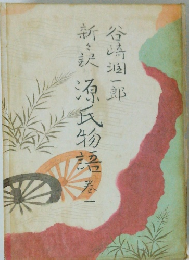 谷崎潤一郎
新々訳 源氏物語 巻一